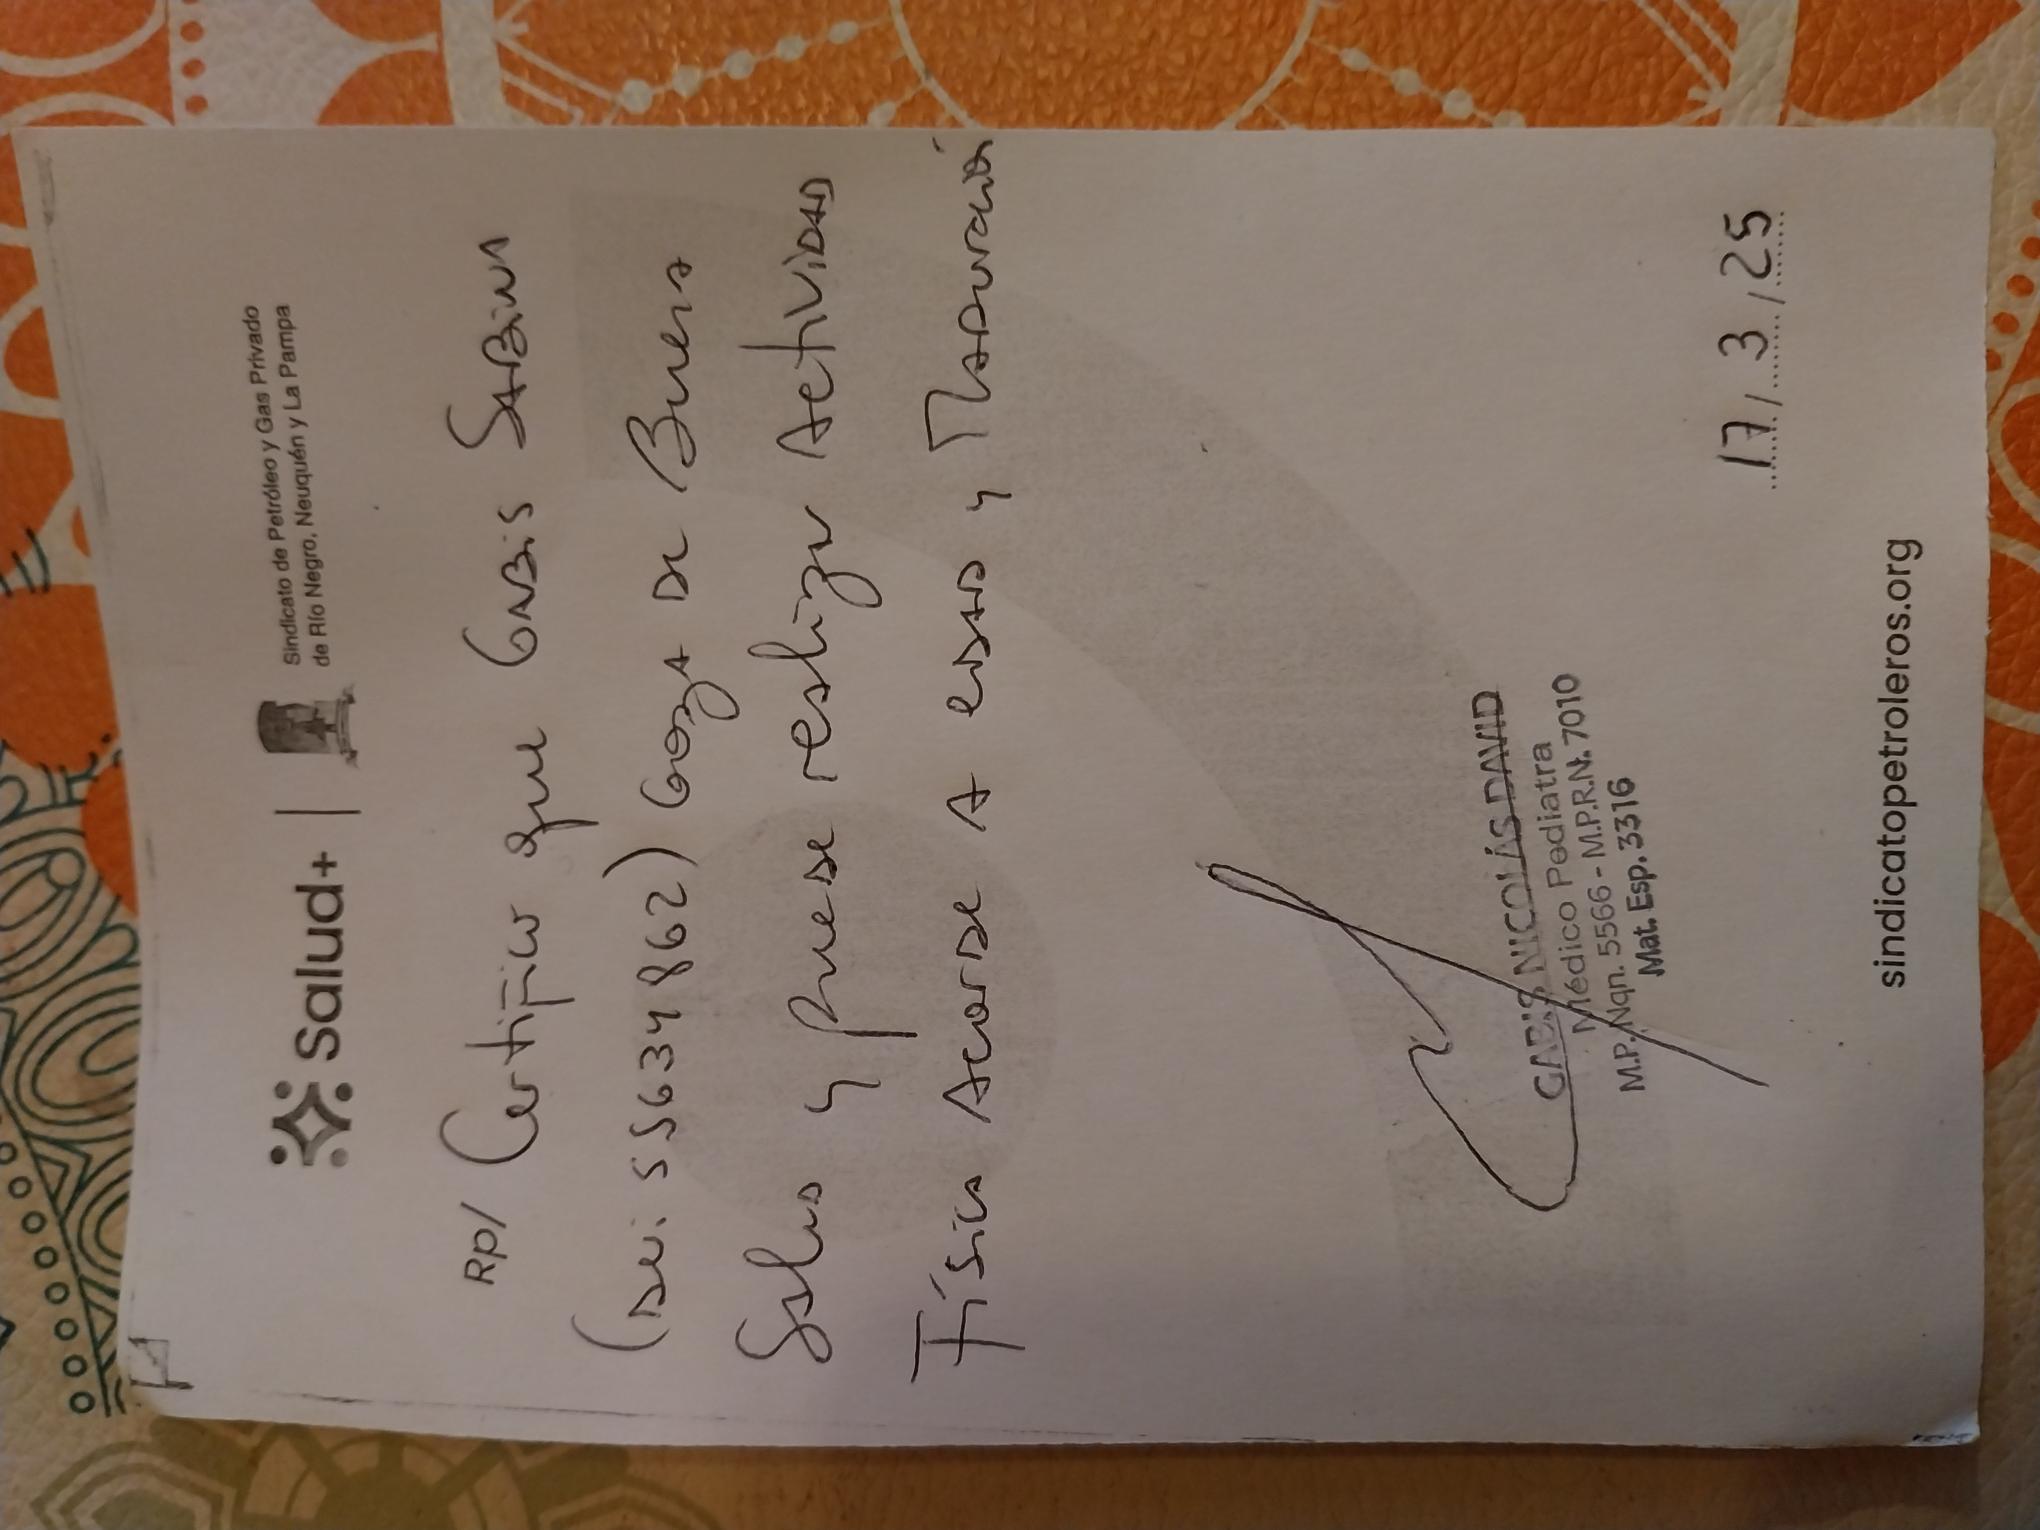 Salud+
Sindicato de Petróleo y Gas Privado
de Río Negro, Neuquén y La Pampa
Rp/ Certifico que GABIS SABINA
(DNI: 55634862) Goza de Buena
Salud y puede realizar Actividad
Física Acorde A edad y Maduración
GABIS NICOLÁS DAVID
Médico Pediatra
M.P. Nqn. 5566 - M.P.R.N. 7010
Mat. Esp. 3316
17/3/25
sindicatopetroleros.org